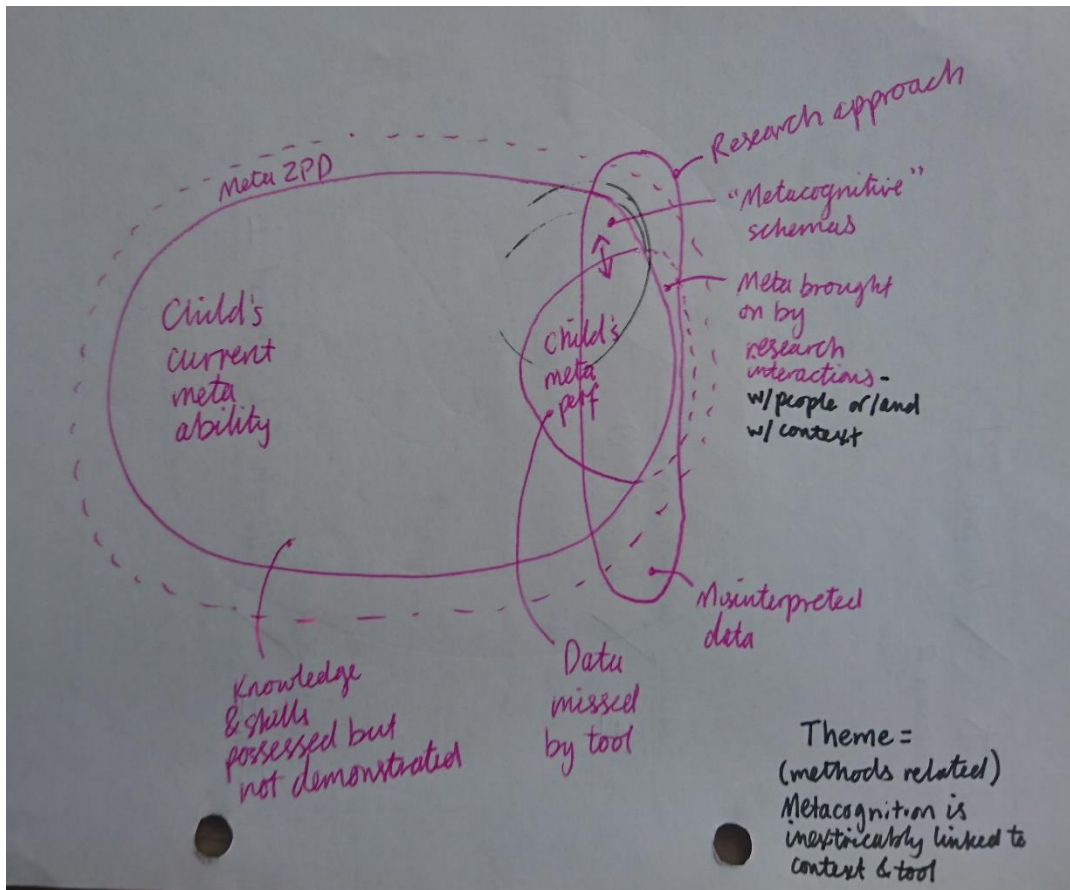 Research approach
Meta ZPD
"Metacognitive"
schemas
Meta brought
on by
research
interactions -
w/people or/and
w/ context
Child's
current
meta
ability
Child's
meta
perf
Misinterpreted
data
Data
missed
by tool
Knowledge
& skills
possessed but
not demonstrated
Theme =
(methods related)
Metacognition is
inextricably linked to
context & tool